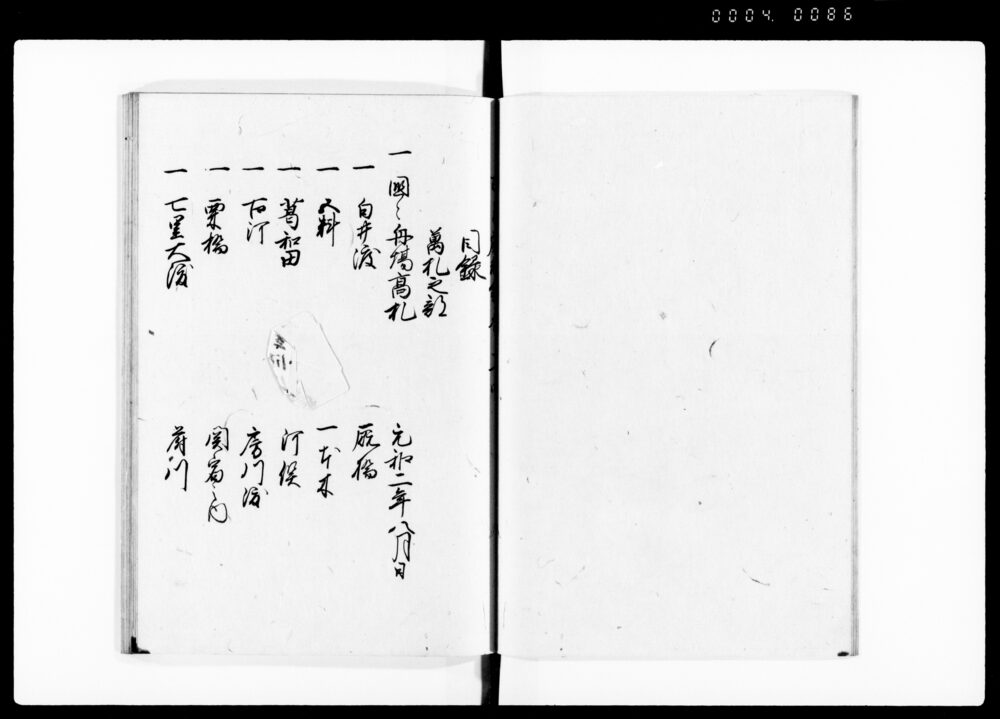 0004. 0086
目録
萬札之部
一 國々舟場高札 元和二年八月日
一 白井渡 厩橋
一 五料 一本木
一 葛和田 河俣
一 古河 房川渡
一 栗橋 関宿之内
一 七里大渡 府川